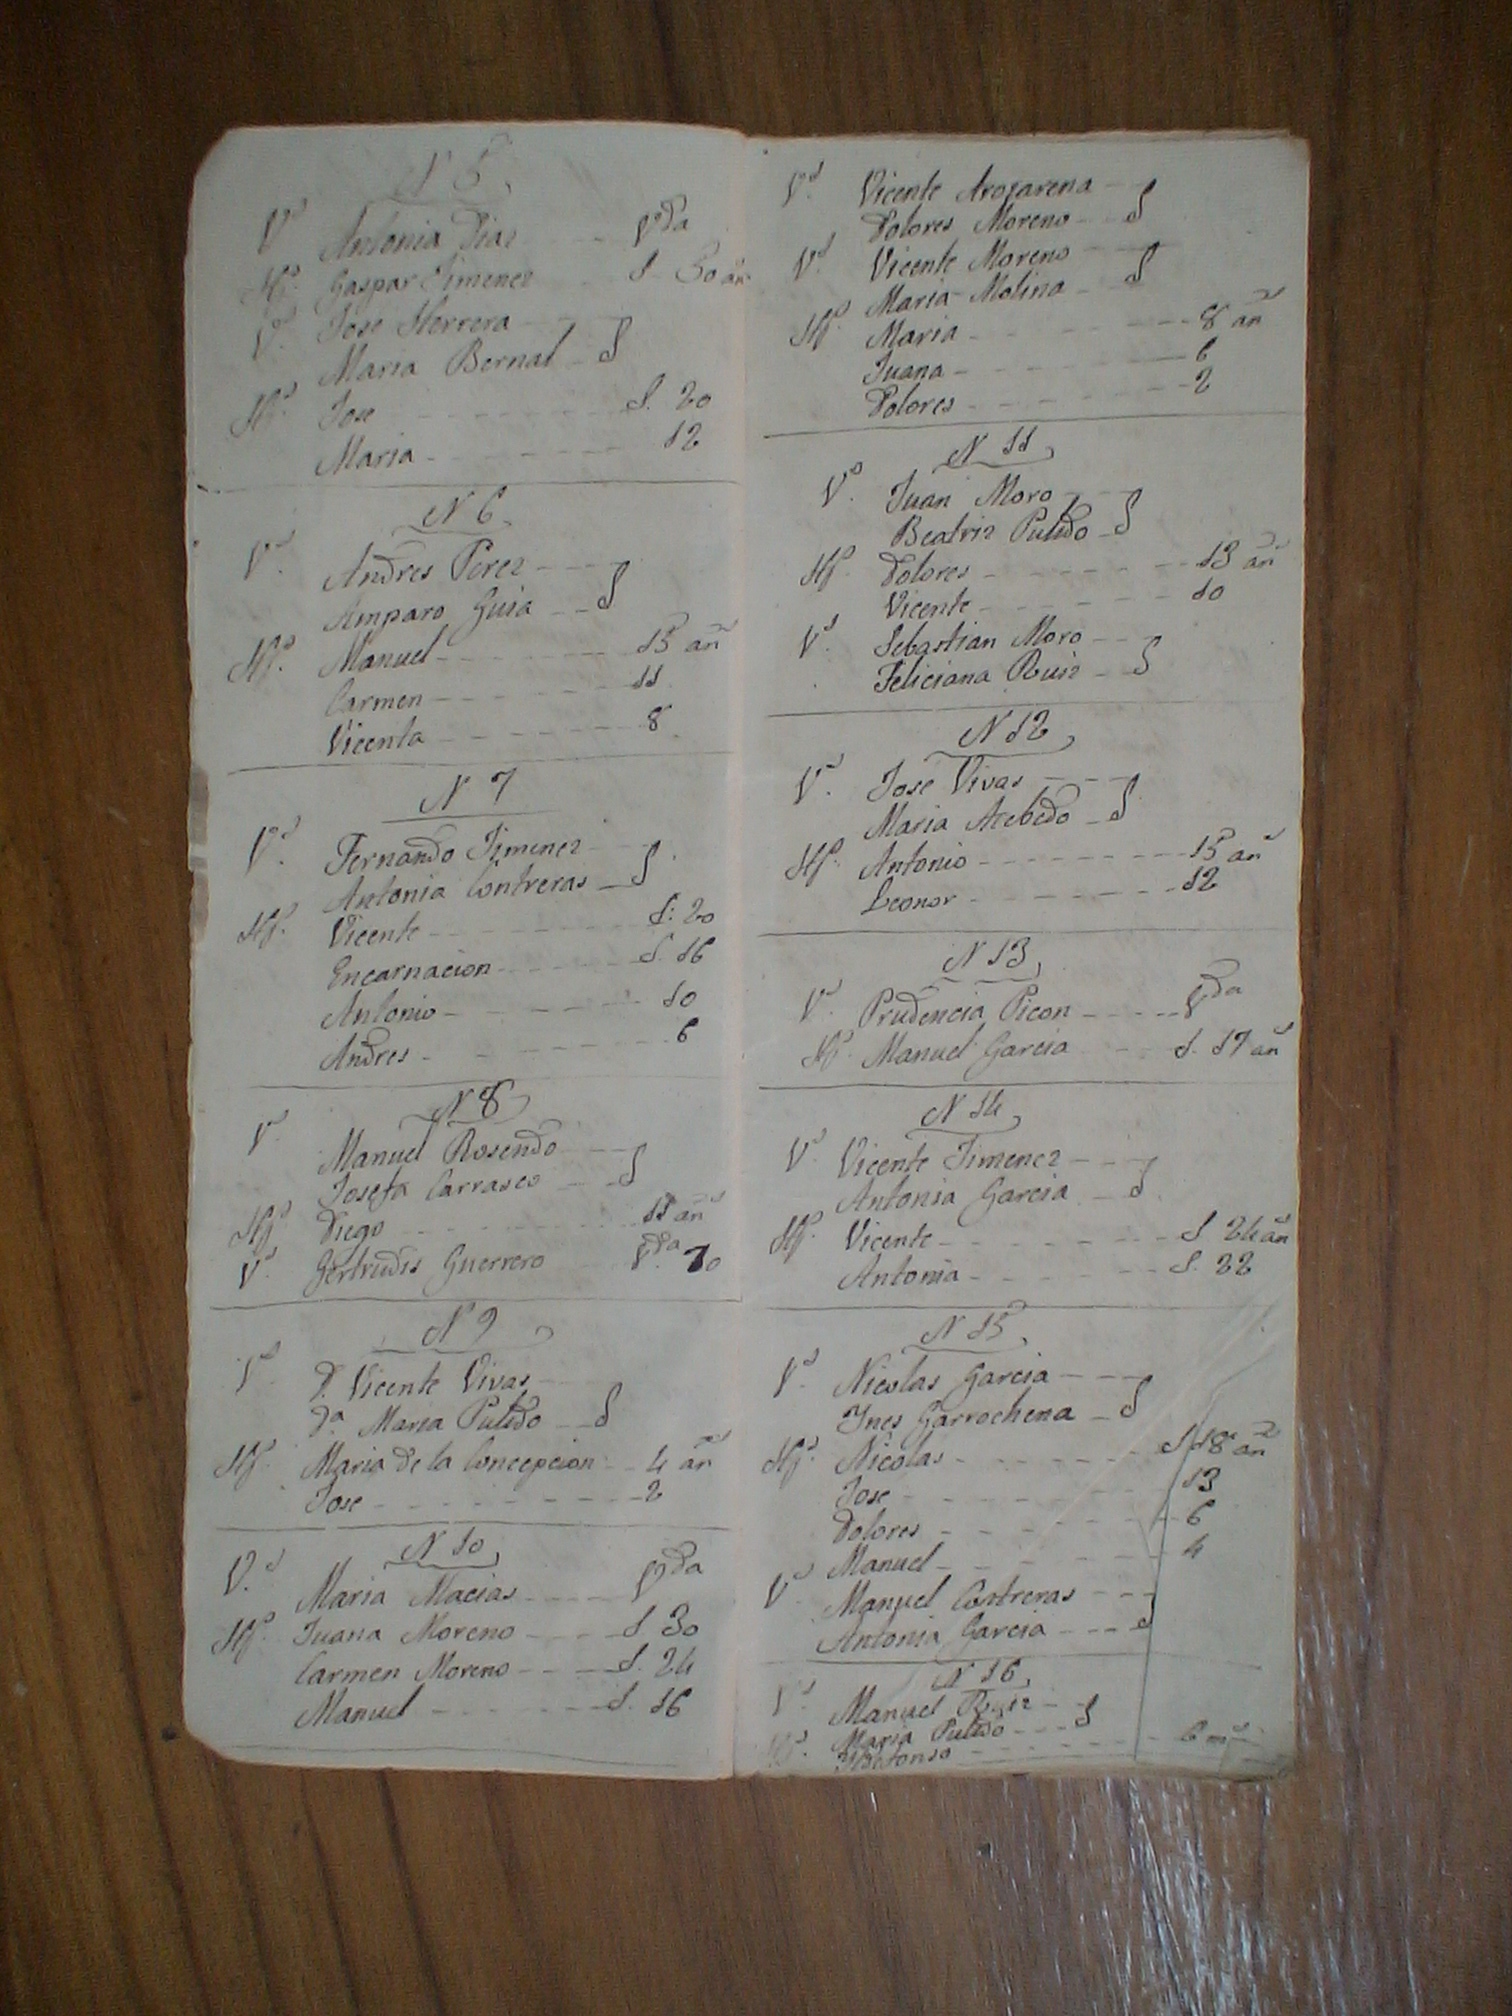 N 5
Vs Antonia Diaz Vda
Hj. Gaspar Jimenez S. 50 añs
Vs Jose Herrera
Maria Bernal
Hjs Jose S. 20
Maria 12
N 6
Vs Andres Perez
Amparo Guia
Hjs Manuel 15 añs
Carmen 11
Vicenta 8
N 7
Vs Fernando Jimenez
Antonia Contreras
Hjs Vicente S. 20
Encarnacion S. 16
Antonio 10
Andres 6
N 8
Vs Manuel Rosendo
Josefa Carrasco
Hjo Diego 11 añs
Vs Gertrudis Guerrero Vda 70
N 9
Vs D. Vicente Vivas
Da. Maria Pulido
Hjs Maria de la Concepcion 4 añs
Jose 2
N 10
Vs Maria Macias Vda
Hjs Juana Moreno S 30
Carmen Moreno S. 24
Manuel S. 16
Vs Vicente
Dolores Moreno
Vs Vicente Moreno
Maria Molina
Hjs Maria 8 añs
Juana 6
Dolores 2
N 11
Vs Juan Moro
Beatriz Pulido
Hjs Dolores 13 añs
Vicente 10
Vs Sebastian Moro
Feliciana Ruiz
N 12
Vs Jose Vivas
Maria Acebedo
Hjs Antonio 15 añs
Leonor 12
N 13
Vs Prudencia Picon Vda
Hjo Manuel Garcia S. 17 añs
N 14
Vs Vicente Jimenez
Antonia Garcia
Hjs Vicente S 24 añs
Antonia S. 22
N 15
Vs Nicolas Garcia
Ynes Garrochena
Hjs Nicolas S 18 añs
Jose 13
Dolores 6
Manuel 4
Vs Manuel Contreras
Antonia Garcia
N 16
Vs Manuel Ruiz
Maria Pulido
Hjo Yldefonso 6 ms